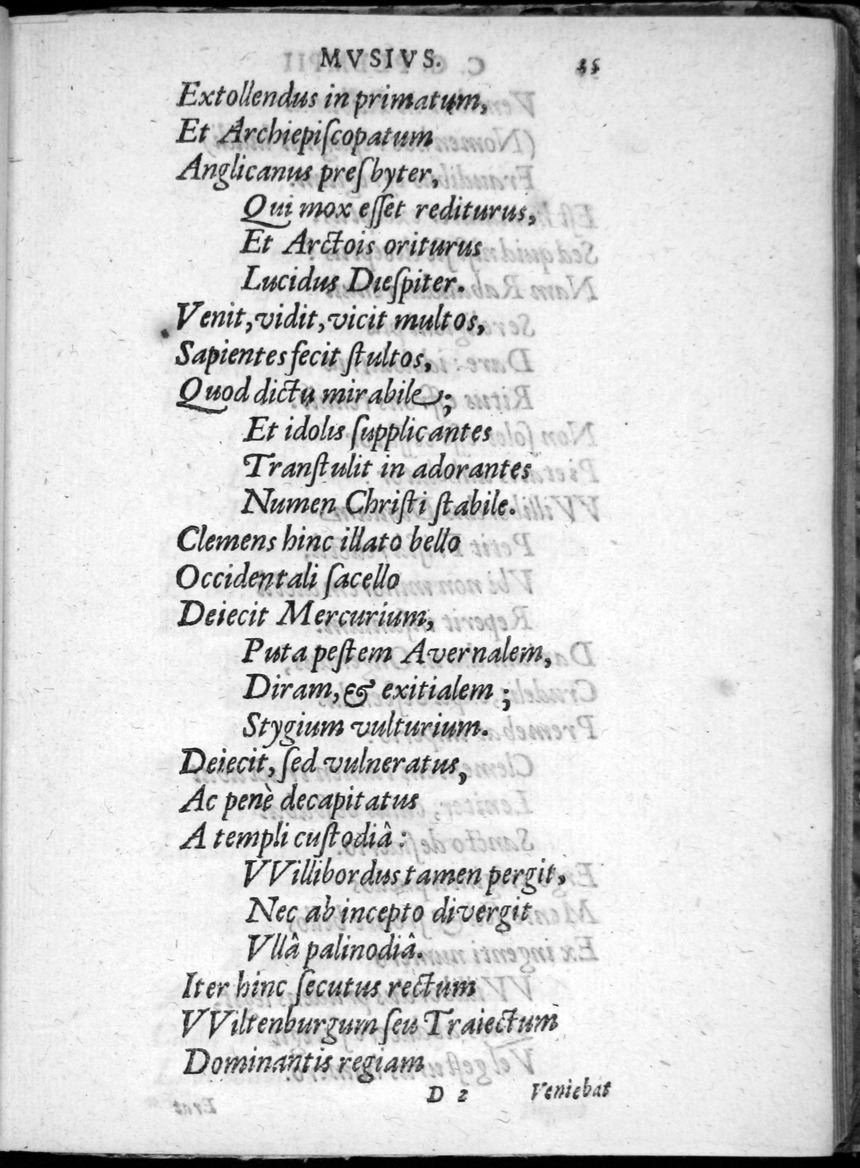 MVSIVS. 35
Extollendus in primatum,
Et Archiepiſcopatum
Anglicanus preſbyter,
Qui mox eſſet rediturus,
Et Arctois oriturus
Lucidus Dieſpiter.
Venit, vidit, vicit multos,
Sapientes fecit ſtultos,
Quod dictu mirabile;
Et idolis ſupplicantes
Tranſtulit in adorantes
Numen Chriſti ſtabile.
Clemens hinc illato bello
Occidentali ſacello
Deiecit Mercurium,
Puta peſtem Avernalem,
Diram, & exitialem;
Stygium vulturium.
Deiecit, ſed vulneratus,
Ac penè decapitatus
A templi cuſtodiâ:
VVillibordus tamen pergit,
Nec ab incepto divergit
Vllâ palinodiâ.
Iter hinc ſecutus rectum
VViltenburgum ſeu Traiectum
Dominantis regiam
D 2 Veniebat